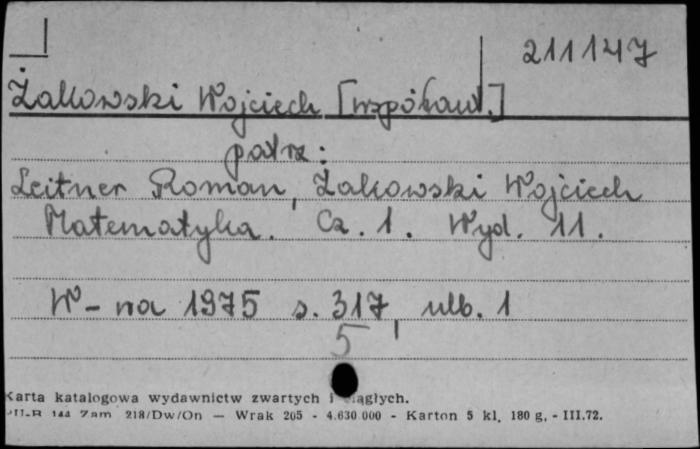 211147
Żakowski Wojciech [współaut.]
patrz:
Leitner Roman, Żakowski Wojciech
Matematyka. Cz. 1. Wyd. 11.
W-wa 1975 s. 317, nlb. 1
5
Karta katalogowa wydawnictw zwartych i ciągłych.
Zam. 218/Dw/On — Wrak 205 - 4.630.000 - Karton 5 kl. 180 g. - III.72.